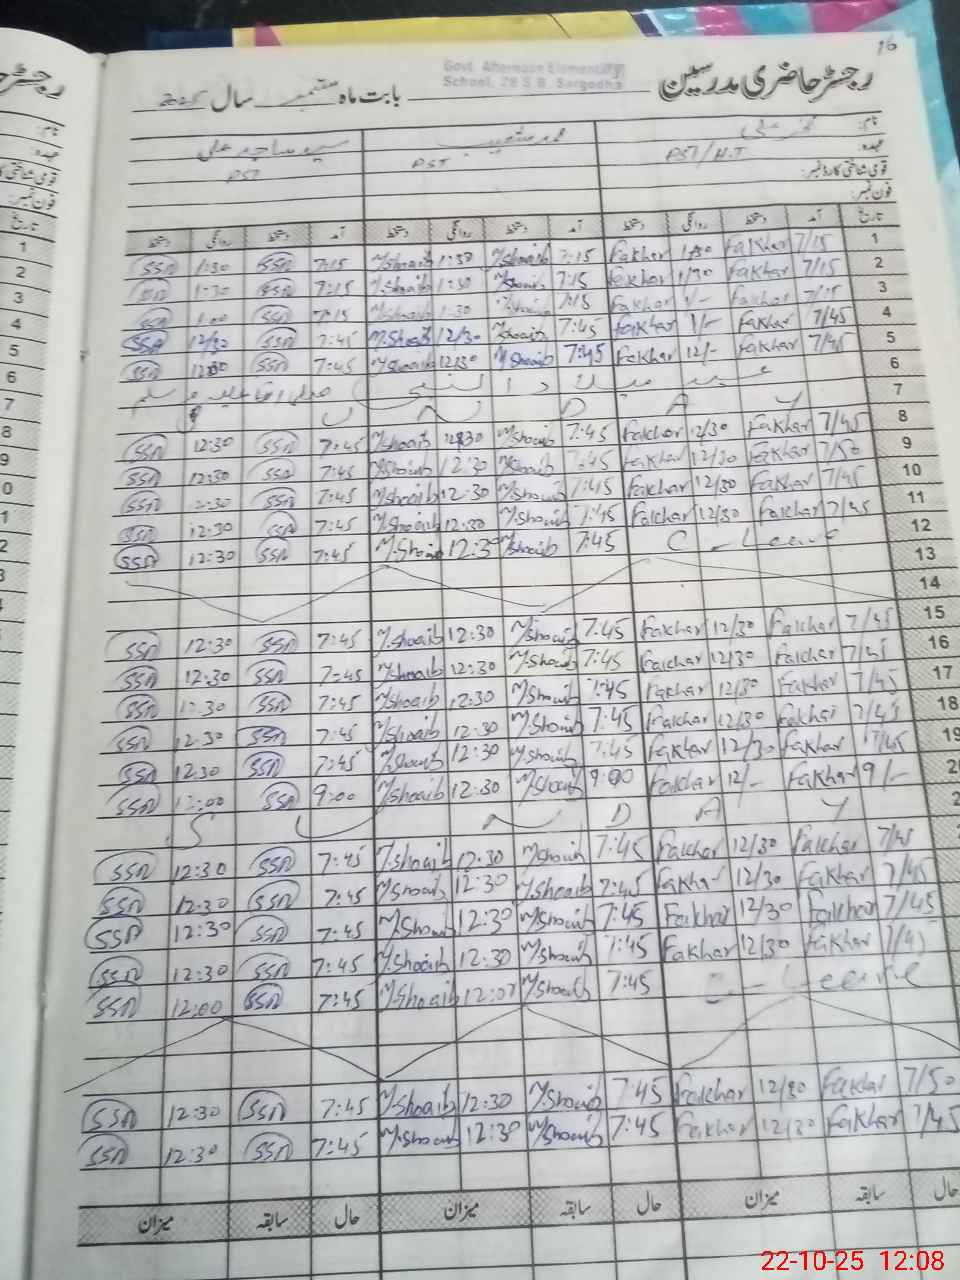 16
Govt. Afternoon Elementary
School, 28 S.B. Sargodha
رجسٹر حاضری مدرسین بابت ماہ ستمبر سال
نام: فخر علی محمد شعیب سید ساجد علی
عہدہ: PST/H.T PST PST
قومی شناختی کارڈ نمبر:
فون نمبر:
تاریخ آمد دستخط روانگی دستخط آمد دستخط روانگی دستخط آمد دستخط روانگی دستخط
1 7/15 Fakhar 1/30 Fakhar 7:15 M.Shoaib 1:30 M.Shoaib 7:15 SSA 1:30 SSA
2 7/15 Fakhar 1/30 Fakhar 7:15 M.Shoaib 1:30 M.Shoaib 7:15 SSA 1:30 SSA
3 7/15 Fakhar 1/- Fakhar 7:15 M.Shoaib 1:30 M.Shoaib 7:15 SSA 1:00 SSA
4 7/45 Fakhar 1/- Fakhar 7:45 M.Shoaib 12/30 M.Shoaib 7:45 SSA 12/30 SSA
5 7/45 Fakhar 12/- Fakhar 7:45 M.Shoaib 12:30 M.Shoaib 7:45 SSA 12:30 SSA
6 عید میلاد النبی صلی اللہ علیہ وسلم
7 S U N D A Y
8 7/45 Fakhar 12/30 Fakhar 7:45 M.Shoaib 12:30 M.Shoaib 7:45 SSA 12:30 SSA
9 7/50 Fakhar 12/30 Fakhar 7:45 M.Shoaib 12:30 M.Shoaib 7:45 SSA 12:30 SSA
10 7/45 Fakhar 12/30 Fakhar 7:45 M.Shoaib 12:30 M.Shoaib 7:45 SSA 12:30 SSA
11 7/45 Fakhar 12/30 Fakhar 7:45 M.Shoaib 12:30 M.Shoaib 7:45 SSA 12:30 SSA
12 C - Leave 7:45 M.Shoaib 12:30 M.Shoaib 7:45 SSA 12:30 SSA
13
14
15 7/45 Fakhar 12/30 Fakhar 7:45 M.Shoaib 12:30 M.Shoaib 7:45 SSA 12:30 SSA
16 7/45 Fakhar 12/30 Fakhar 7:45 M.Shoaib 12:30 M.Shoaib 7:45 SSA 12:30 SSA
17 7/45 Fakhar 12/30 Fakhar 7:45 M.Shoaib 12:30 M.Shoaib 7:45 SSA 12:30 SSA
18 7/45 Fakhar 12/30 Fakhar 7:45 M.Shoaib 12:30 M.Shoaib 7:45 SSA 12:30 SSA
19 7/45 Fakhar 12/30 Fakhar 7:45 M.Shoaib 12:30 M.Shoaib 7:45 SSA 12:30 SSA
9/- Fakhar 12/- Fakhar 9:00 M.Shoaib 12:30 M.Shoaib 9:00 SSA 12:00 SSA
S U N D A Y
7/45 Fakhar 12/30 Fakhar 7:45 M.Shoaib 12:30 M.Shoaib 7:45 SSA 12:30 SSA
7/45 Fakhar 12/30 Fakhar 7:45 M.Shoaib 12:30 M.Shoaib 7:45 SSA 12:30 SSA
7/45 Fakhar 12/30 Fakhar 7:45 M.Shoaib 12:30 M.Shoaib 7:45 SSA 12:30 SSA
7/45 Fakhar 12/30 Fakhar 7:45 M.Shoaib 12:30 M.Shoaib 7:45 SSA 12:30 SSA
C - Leave 7:45 M.Shoaib M.Shoaib 7:45 SSA 12:00 SSA
7/50 Fakhar 12/30 Fakhar 7:45 M.Shoaib 12:30 M.Shoaib 7:45 SSA 12:30 SSA
7/45 Fakhar 12/30 Fakhar 7:45 M.Shoaib 12:30 M.Shoaib 7:45 SSA 12:30 SSA
حال سابقہ میزان حال سابقہ میزان حال سابقہ میزان
22-10-25 12:08